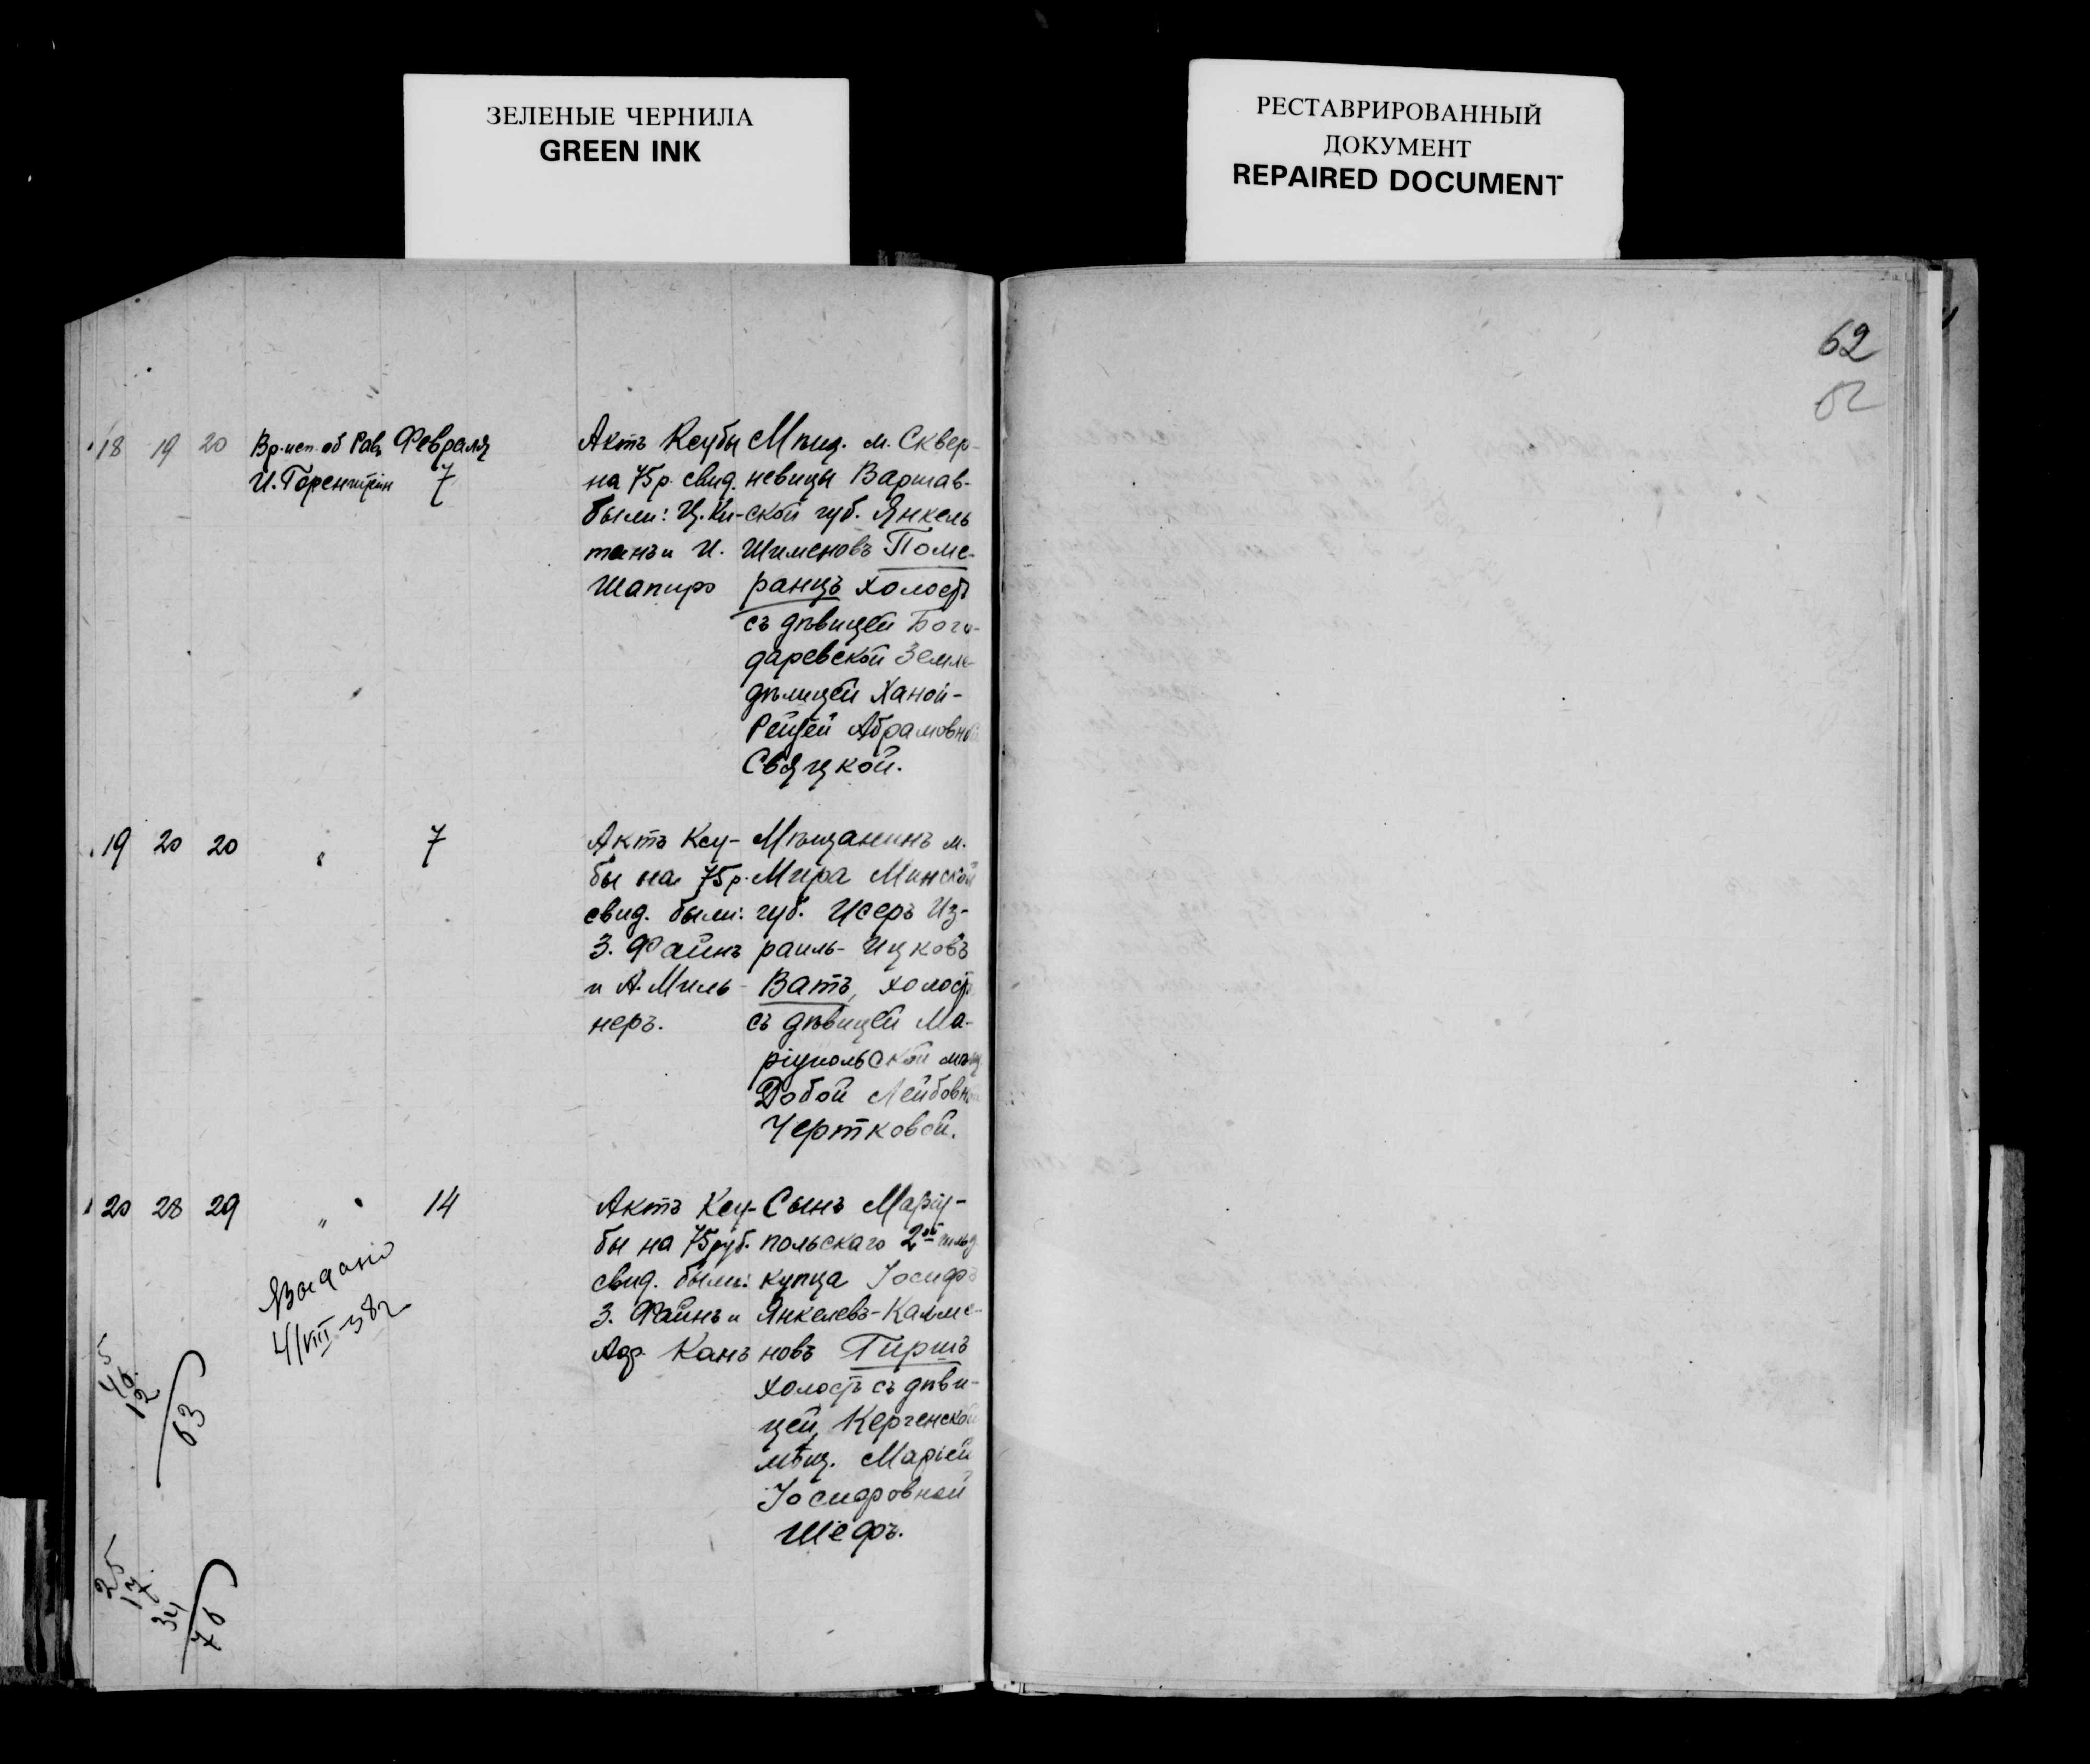 ЗЕЛЕНЫЕ ЧЕРНИЛА
GREEN INK
РЕСТАВРИРОВАННЫЙ
ДОКУМЕНТ
REPAIRED DOCUMENT
62
18 19 20 Вр. исп. об Рав. Февраля
И. Горенштейн 7
Актъ Ксубы
на 75 р. свид.
были: Ц. Ки-
танъ и И.
Шапиро
Мѣщ. м. Сквер-
невицы Варшав-
ской губ. Янкель
Шименовъ Поме-
ранцъ холостъ
съ дѣвицей Бого-
даревской Земле-
дѣлицей Ханой-
Рейзей Абрамовной
Святцкой.
19 20 20 " 7
Актъ Ксу-
бы на 75 р.
свид. были:
З. Файнъ
и А. Миль-
неръ.
Мѣщанинъ м.
Мира Минской
губ. Исеръ Из-
раиль-Ицковъ
Ватъ, холостъ
съ дѣвицей Ма-
ріупольской мѣщ.
Добой Лейбовной
Чертковой.
20 28 29 " 14
Актъ Ксу-
бы на 75 руб.
свид. были:
З. Файнъ и
Аф. Канъ
Сынъ Маріу-
польскаго 2ой гильд.
купца Іосифъ
Янкелевъ-Калме-
новъ Гиршъ
холостъ съ дѣви-
цей, Керченской
мѣщ. Маріей
Іосифовной
Шефъ.
Выдано
4/VIII-38г
45
12
63
25
17
34
76